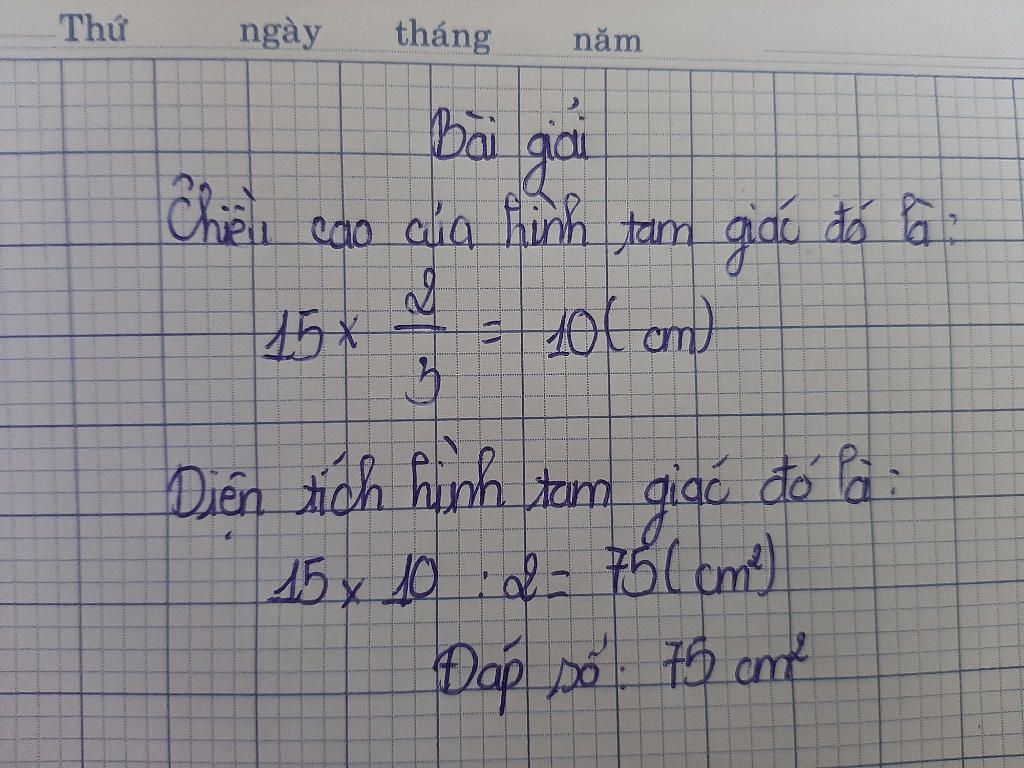 Thứ ngày tháng năm
Bài giải
Chiều cao của hình tam giác đó là:
15 × 2/3 = 10 (cm)
Diện tích hình tam giác đó là:
15 × 10 : 2 = 75 (cm²)
Đáp số: 75 cm²